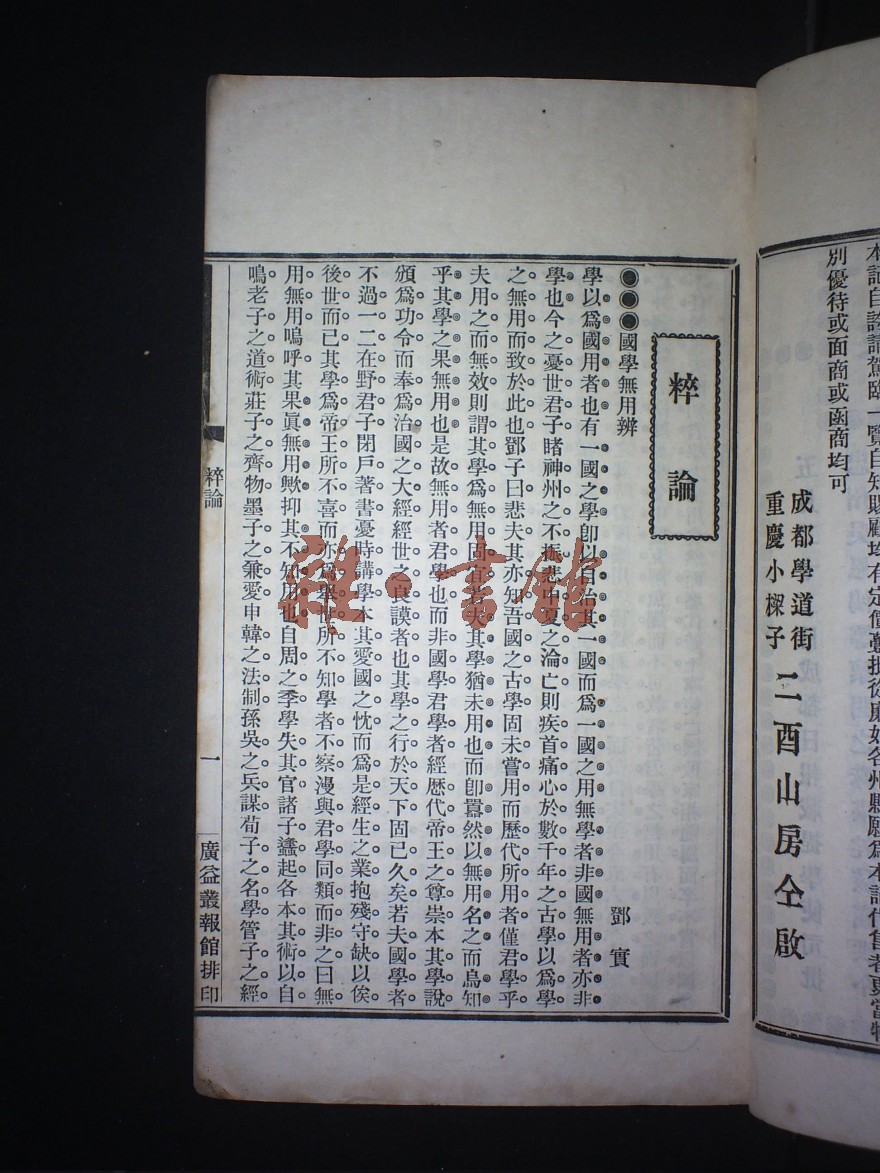 本記自誇請駕臨一覽自知賜顧均有定價
各州縣願爲本記代售者更當特
別優待或面商或函商均可
成都學道街
重慶小樑子
二酉山房仝啟
粹論
●●●國學無用辨
鄧實
學以爲國用者也有一國之學卽以自治其一國而爲一國之用無學者非國無用者亦非
學也今之憂世君子睹神州之不振悲中夏之淪亡則疾首痛心於數千年之古學以爲學
之無用而致於此也鄧子曰悲夫其亦知吾國之古學固未嘗用而歷代所用者僅君學乎
夫用之而無效則謂其學爲無用固宜若夫其學猶未用也而卽囂然以無用名之而烏知
乎其學之果無用也是故無用者君學也而非國學君學者經歷代帝王之尊崇本其學說
頒爲功令而奉爲治國之大經經世之良謨者也其學之行於天下固已久矣若夫國學者
不過一二在野君子閉戶著書憂時講學本其愛國之忱而爲是經生之業抱殘守缺以俟
後世而已其學爲帝王所不喜而亦爲舉世所不知學者不察漫與君學同類而非之曰無
用無用嗚呼其果眞無用歟抑其不知用也自周之季學失其官諸子蠭起各本其術以自
鳴老子之道術莊子之齊物墨子之兼愛申韓之法制孫吳之兵謀荀子之名學管子之經
粹論
一
廣益叢報館排印
雜·書館